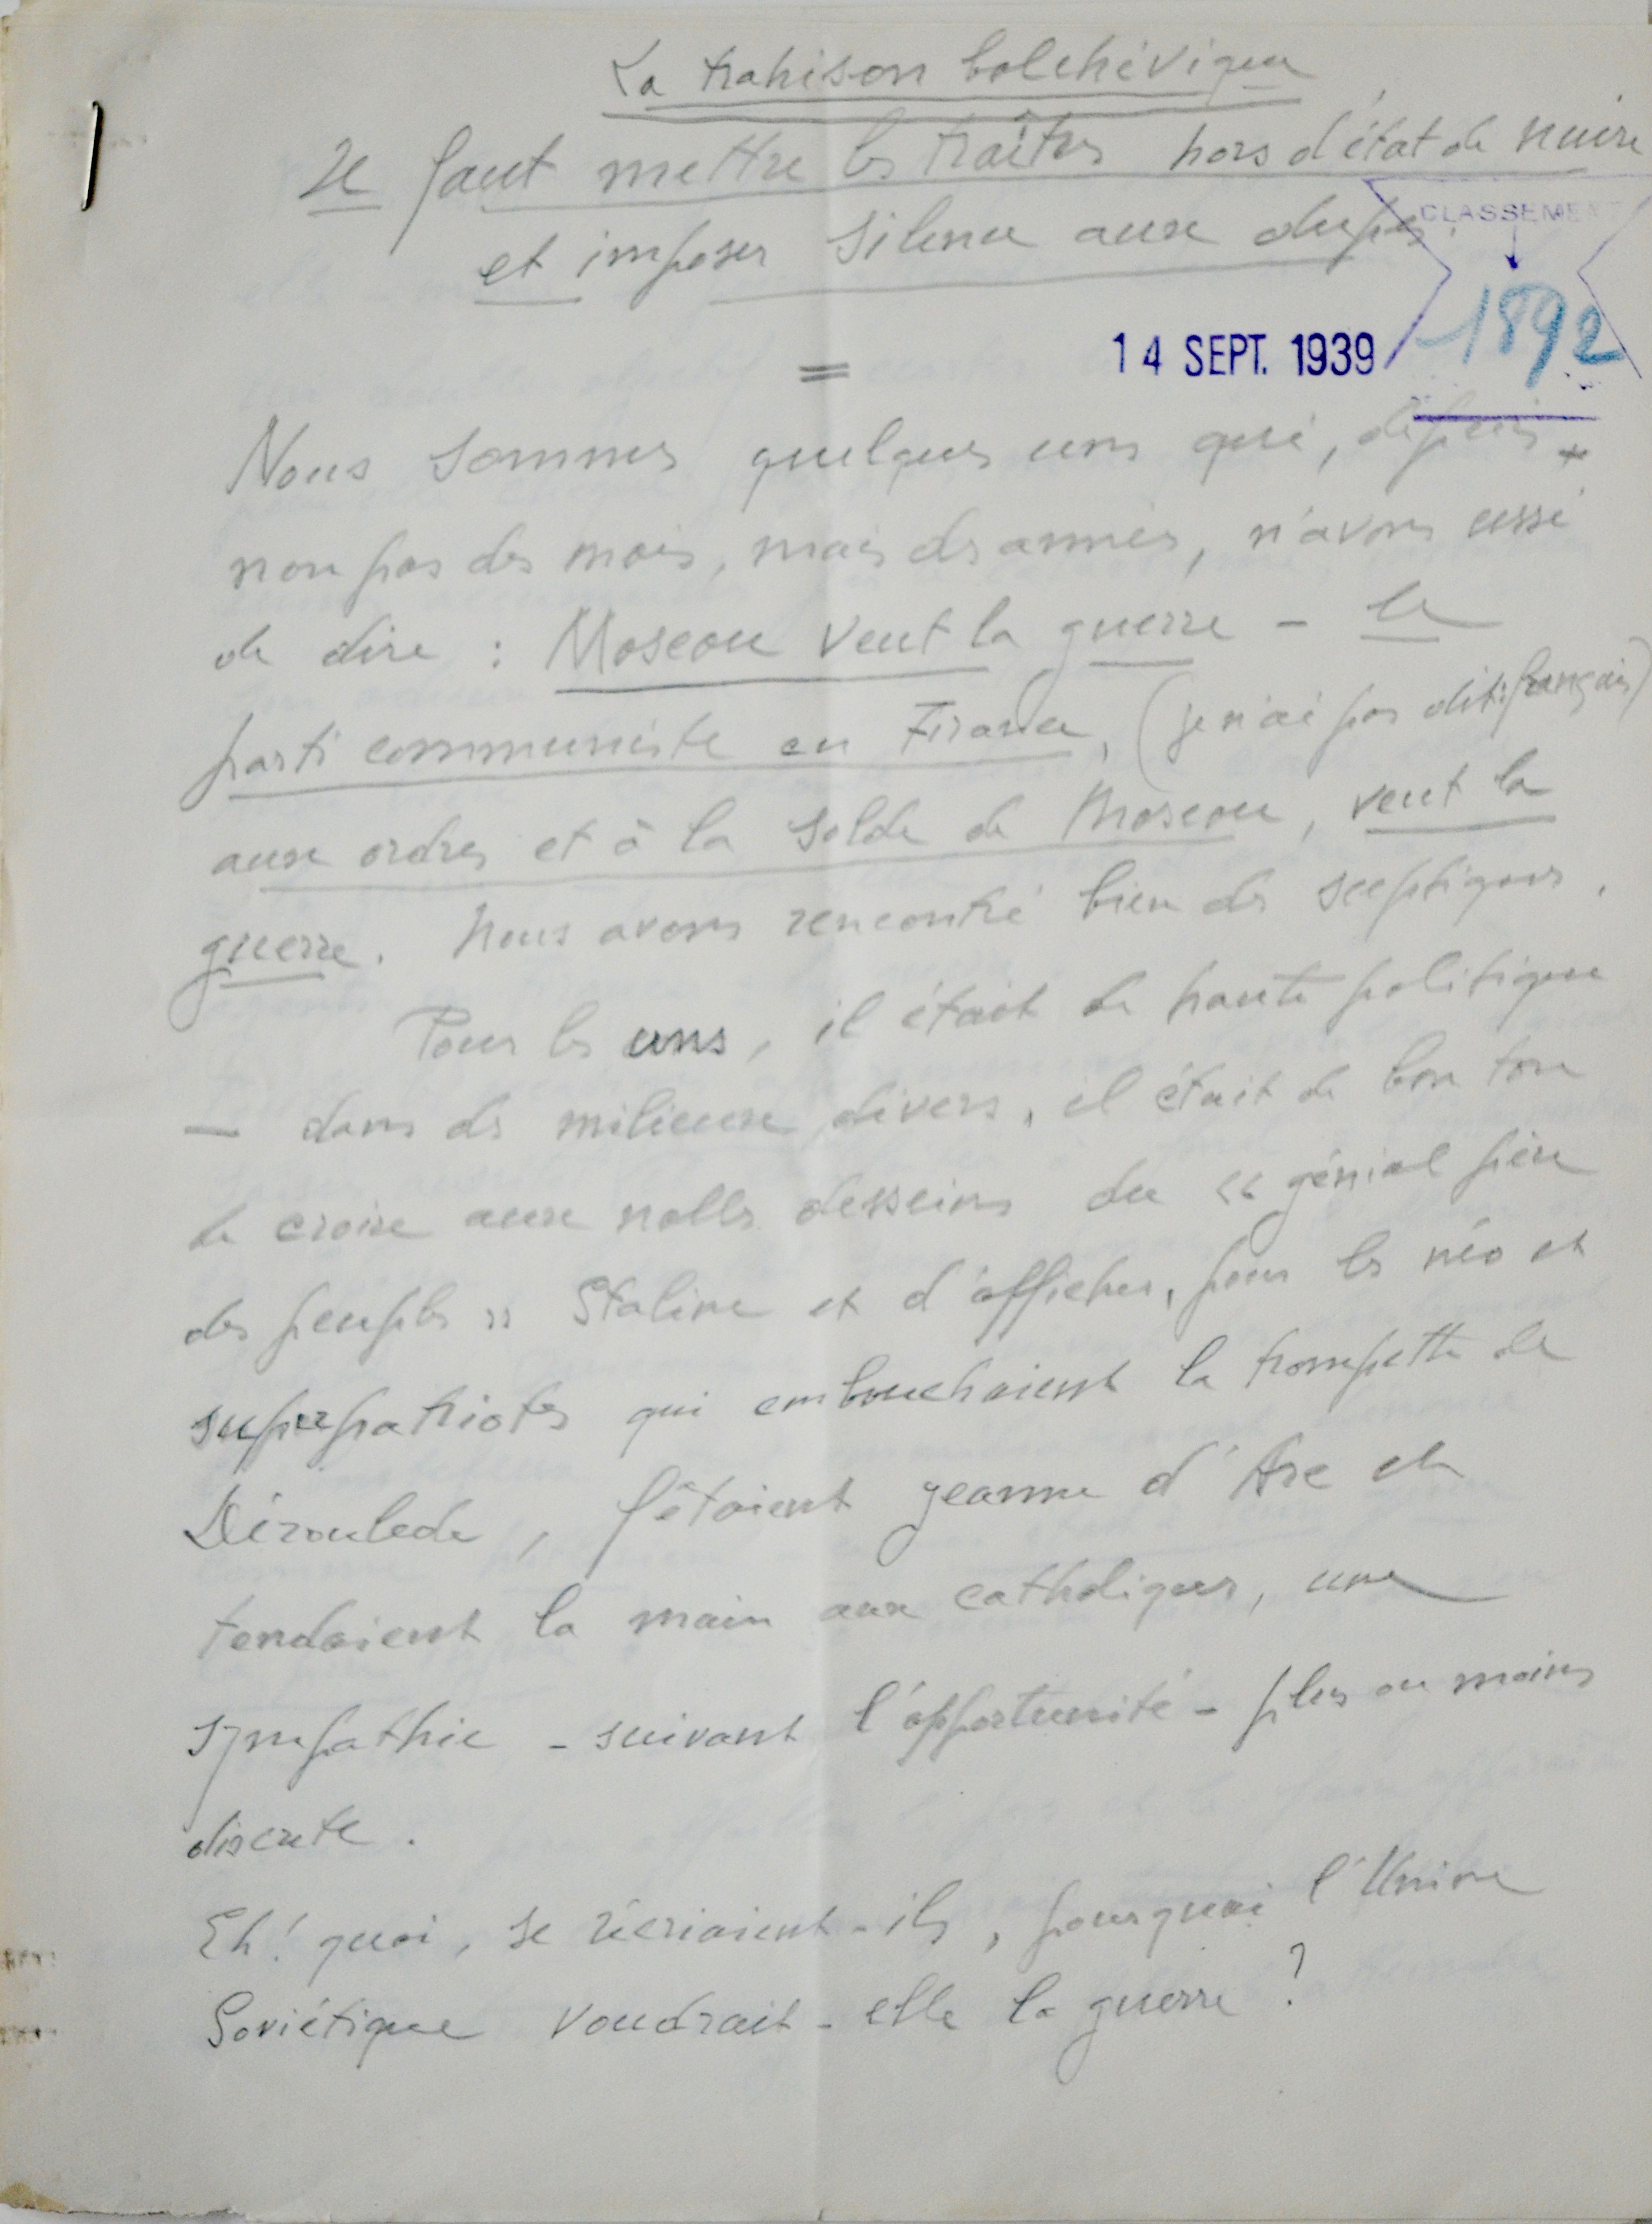 La trahison bolchévique
Il faut mettre les traîtres hors d'état de nuire
et imposer silence aux dupes.
CLASSEMENT
1892
14 SEPT. 1939
=
Nous sommes quelques uns qui, depuis
non pas des mois, mais des années, n'avons cessé
de dire : Moscou veut la guerre – le
parti communiste en France, (je n'ai pas dit: français)
aux ordres et à la solde de Moscou, veut la
guerre. Nous avons rencontré bien des sceptiques.
Pour les uns, il était de haute politique
— dans des milieux divers, il était de bon ton
de croire aux nobles desseins du « génial père
des peuples » Staline et d'afficher, pour les néo et
superpatriotes qui embouchaient la trompette de
Déroulède, fêtaient Jeanne d'Arc et
tendaient la main aux catholiques, une
sympathie – suivant l'opportunité – plus ou moins
discrète.
Eh! quoi, se récriaient-ils, pourquoi l'Union
Soviétique voudrait-elle la guerre ?